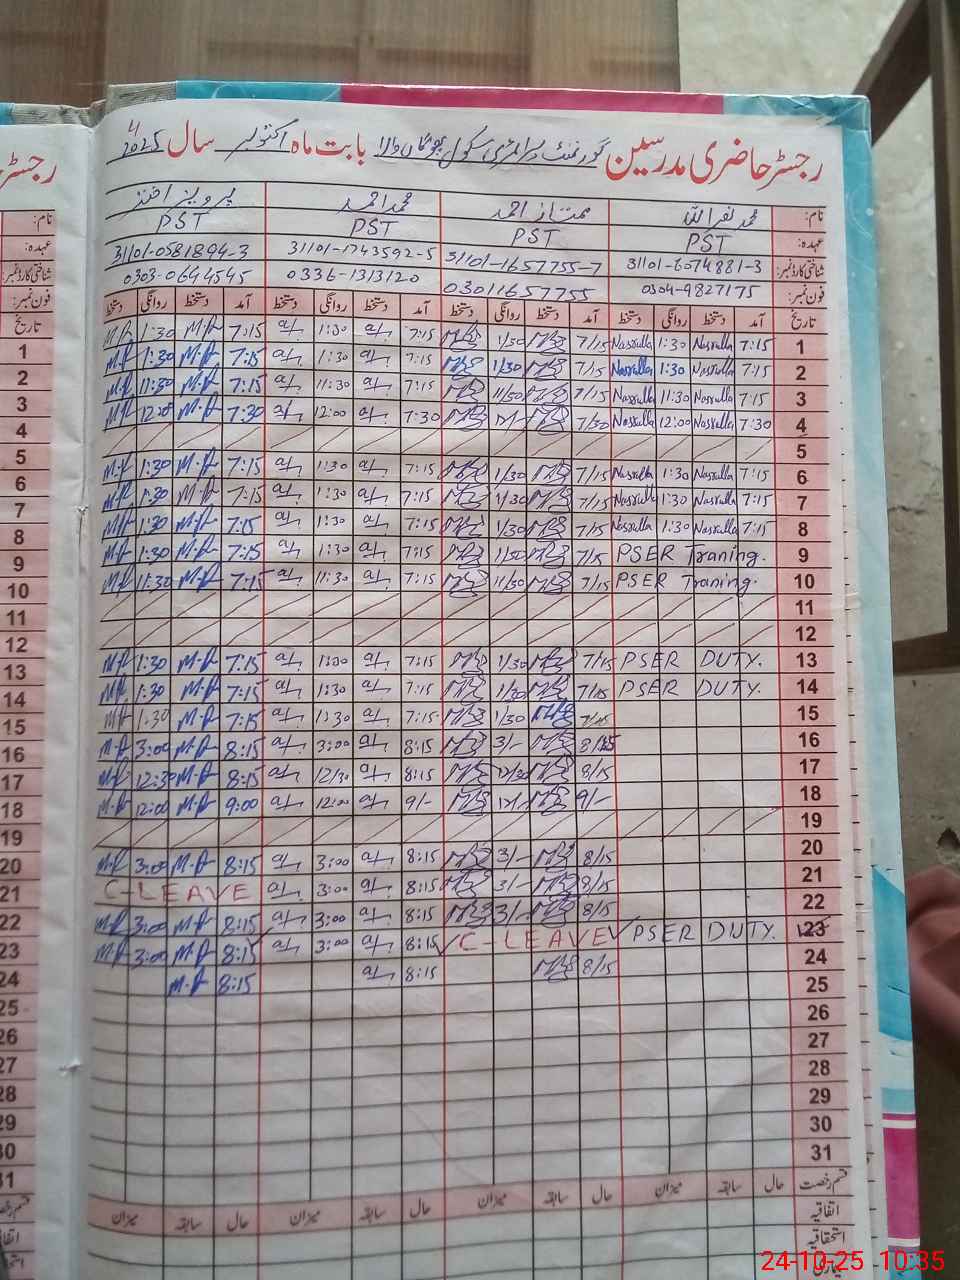 رجسٹر حاضری مدرسین گورنمنٹ پرائمری سکول بابت ماہ اکتوبر سال 2025
نام: محمد نصراللہ ممتاز احمد محمد احمد پرویز اختر
عہدہ: PST PST PST PST
شناختی کارڈ نمبر: 31101-6074881-3 31101-1657755-7 31101-1743592-5 31101-0581894-3
فون نمبر: 0304-9827175 03011657755 0336-1313120 0303-0644545
تاریخ آمد دستخط روانگی دستخط آمد دستخط روانگی دستخط آمد دستخط روانگی دستخط آمد دستخط روانگی دستخط
1 7:15 Nasrulla 1:30 Nasrulla 7/15 1/30 7:15 1:30 7:15 M.P 1:30 M.P
2 7:15 Nasrulla 1:30 Nasrulla 7/15 1/30 7:15 1:30 7:15 M.P 1:30 M.P
3 7:15 Nasrulla 11:30 Nasrulla 7/15 11/30 7:15 11:30 7:15 M.P 11:30 M.P
4 7:30 Nasrulla 12:00 Nasrulla 7/30 12/- 7:30 12:00 7:30 M.P 12:00 M.P
5
6 7:15 Nasrulla 1:30 Nasrulla 7/15 1/30 7:15 1:30 7:15 M.P 1:30 M.P
7 7:15 Nasrulla 1:30 Nasrulla 7/15 1/30 7:15 1:30 7:15 M.P 1:30 M.P
8 7:15 Nasrulla 1:30 Nasrulla 7/15 1/30 7:15 1:30 7:15 M.P 1:30 M.P
9 PSER Traning. 7/15 1/30 7:15 1:30 7:15 M.P 1:30 M.P
10 PSER Traning. 7/15 11/30 7:15 11:30 7:15 M.P 11:30 M.P
11
12
13 PSER DUTY. 7/15 1/30 7:15 1:30 7:15 M.P 1:30 M.P
14 PSER DUTY. 7/15 1/30 7:15 1:30 7:15 M.P 1:30 M.P
15 7/15 1/30 7:15 1:30 7:15 M.P 1:30 M.P
16 8/15 3/- 8:15 3:00 8:15 M.P 3:00 M.P
17 8/15 12/30 8:15 12/30 8:15 M.P 12:30 M.P
18 9/- 12/- 9/- 12:00 9:00 M.P 12:00 M.P
19
20 8/15 3/- 8:15 3:00 8:15 M.P 3:00 M.P
21 8/15 3/- 8:15 3:00 C-LEAVE
22 8/15 3/- 8:15 3:00 8:15 M.P 3:00 M.P
23 PSER DUTY. C-LEAVE 8:15 3:00 8:15 M.P 3:00 M.P
24 8/15 8:15 8:15 M.P
25
26
27
28
29
30
31
قسم رخصت حال سابقہ میزان حال سابقہ میزان حال سابقہ میزان حال سابقہ میزان
اتفاقیہ
استحقاقیہ
بیماری
24-10-25 10:35